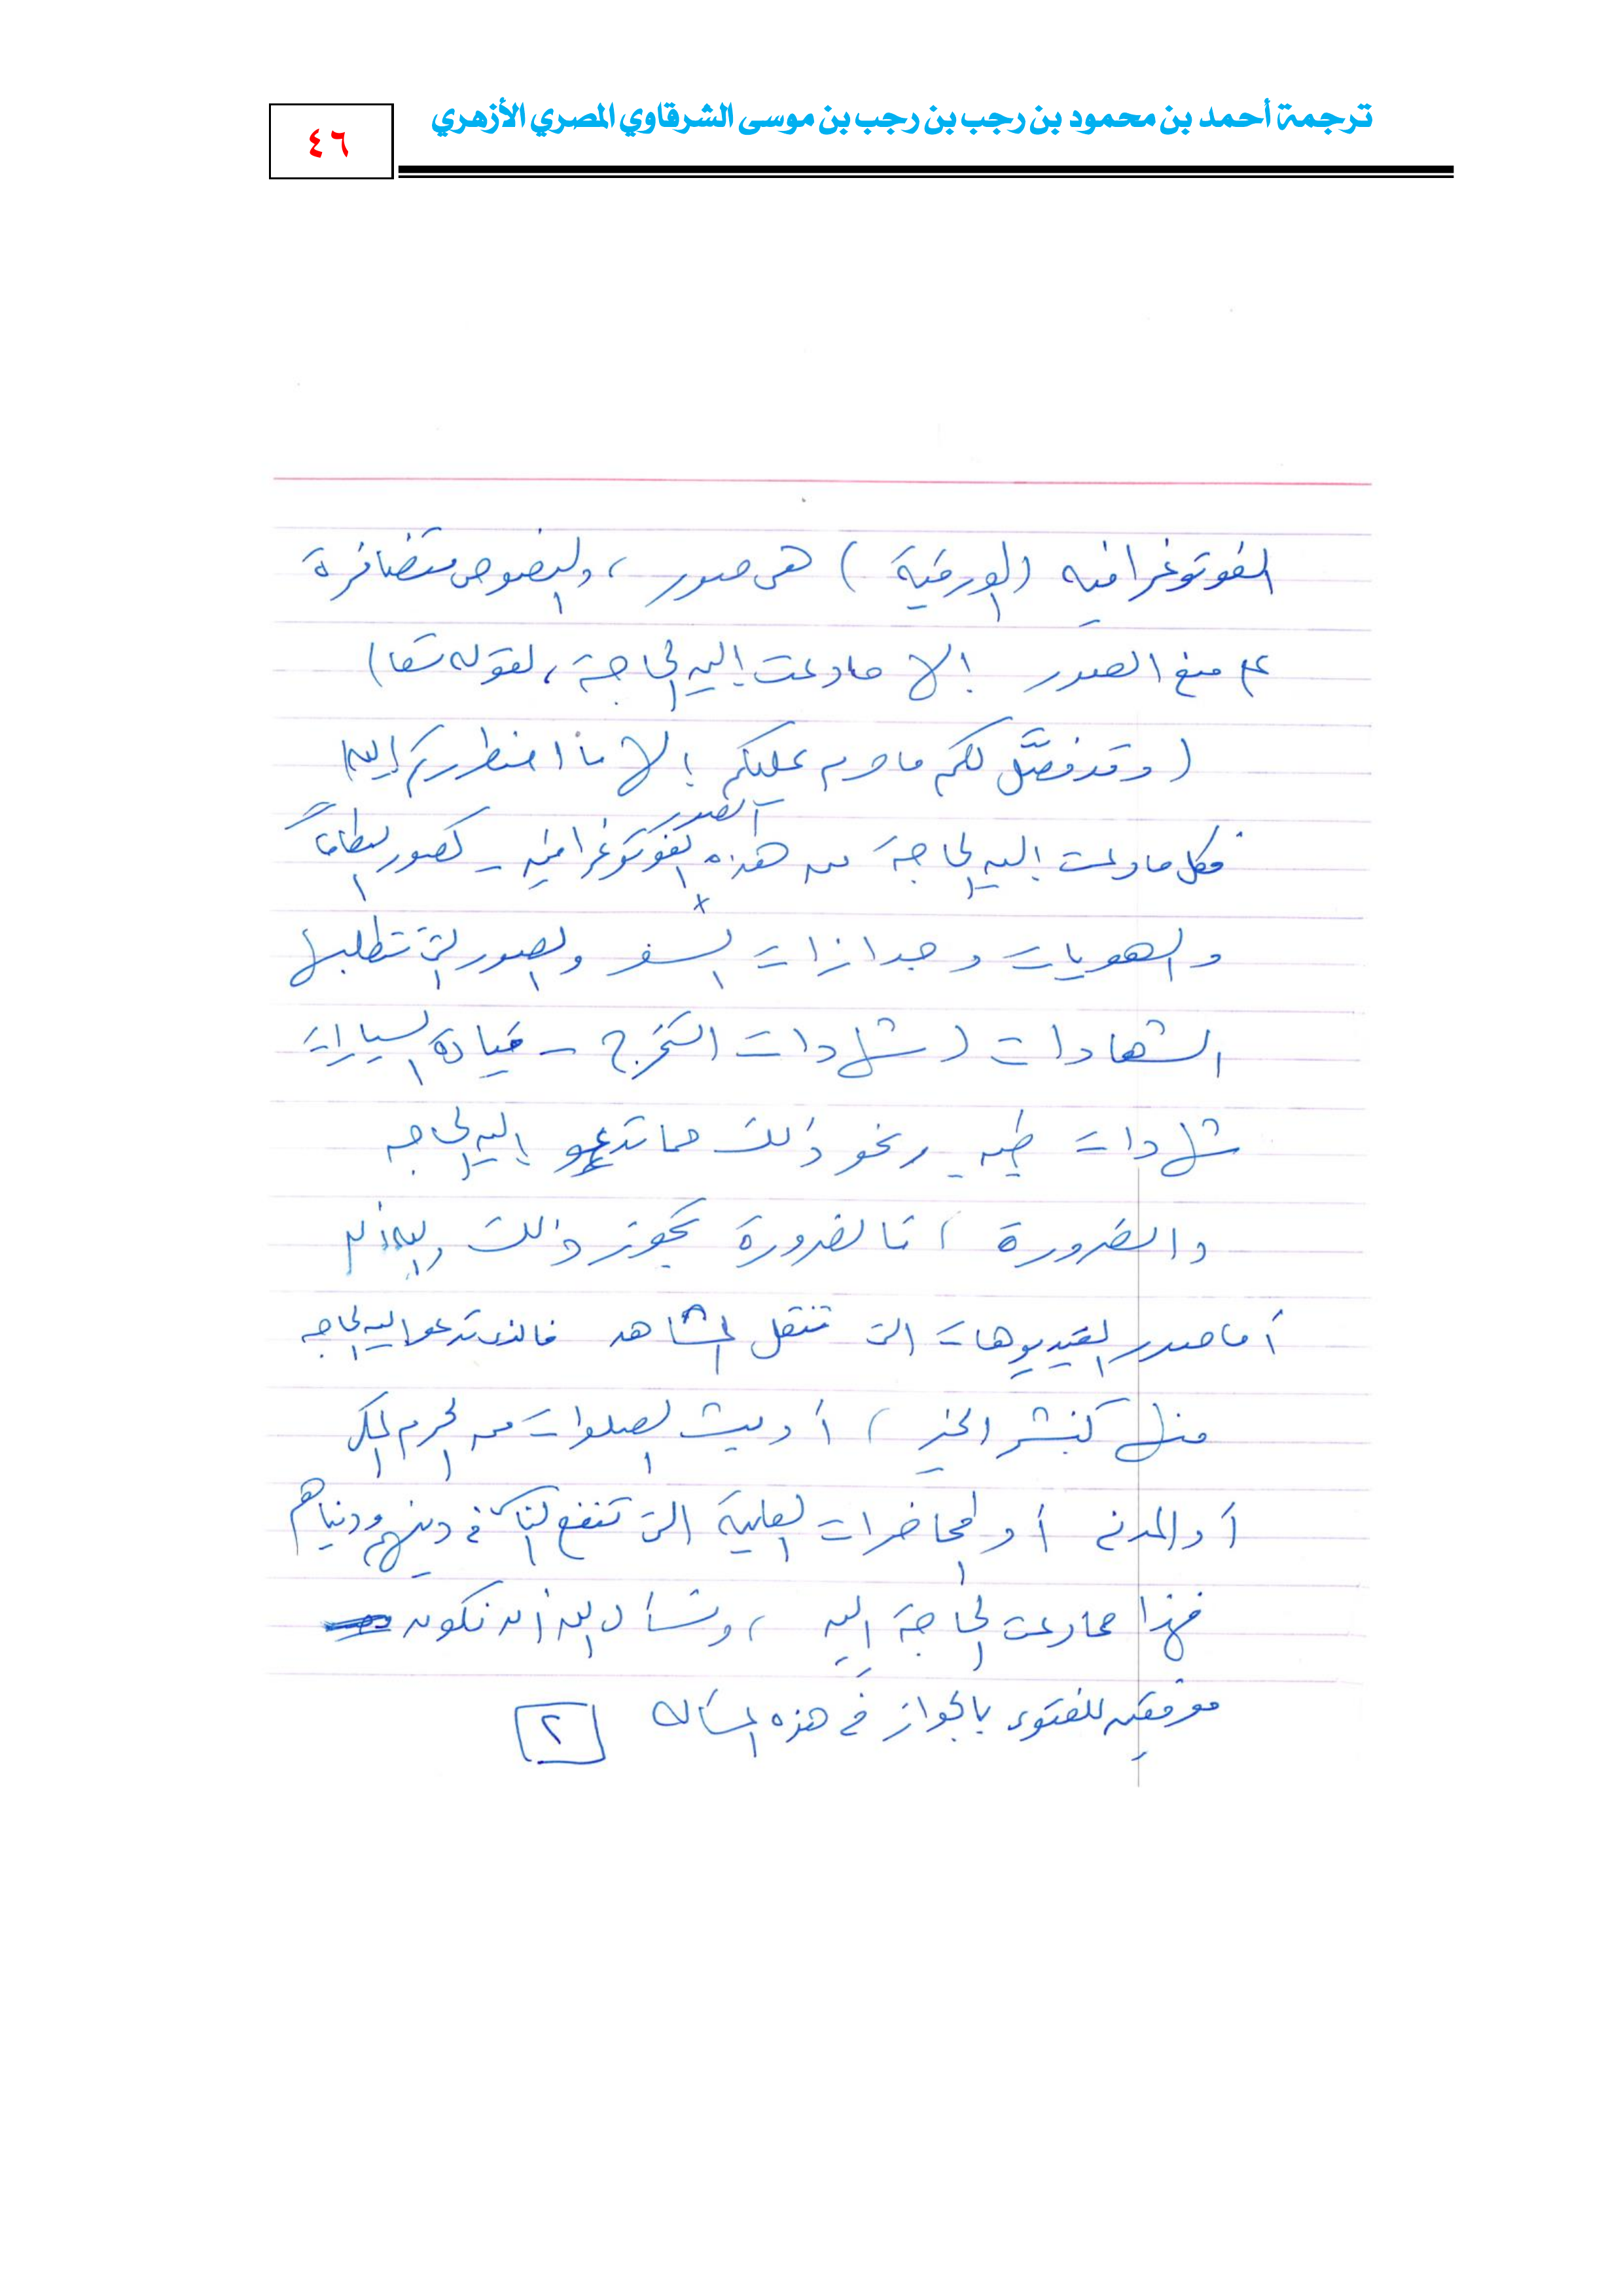 ترجمة أحمد بن محمود بن رجب بن رجب بن موسى الشرقاوي المصري الأزهري
٤٦
الفوتوغرافيه (الورقية) هى صور، والنصوص متضافرة
على منع الصور إلا ما دعت إليه الحاجة، لقوله تعالى
(وقد فصَّل لكم ما حرم عليكم إلا ما اضطررتم إليه)
الصور
فكل ما دعت إليه الحاجة من هذه الفوتوغرافيه - كصور البطاقات
والهويات وجوازات السفر والصور التى تتطلبها
الشهادات (شهادات التخرج - قيادة السيارات
شهادات طبيه ونحو ذلك مما تدعو إليه الحاجه
والضرورة) فالضرورة تجوز ذلك
أما صور الفيديوهات التى تنقل المشاهد فالذى تدعو إليه الحاجه
منها كنشر الخير، أو بث الصلوات من الحرم المكى
أو المدنى أو المحاضرات العلمية التى تنفع الناس فى دينهم ودنياهم
فهذا مما دعت الحاجة إليه، ونسأل الله أن نكون
موفقين للفتوى بالجواز فى هذه المسأله ٢